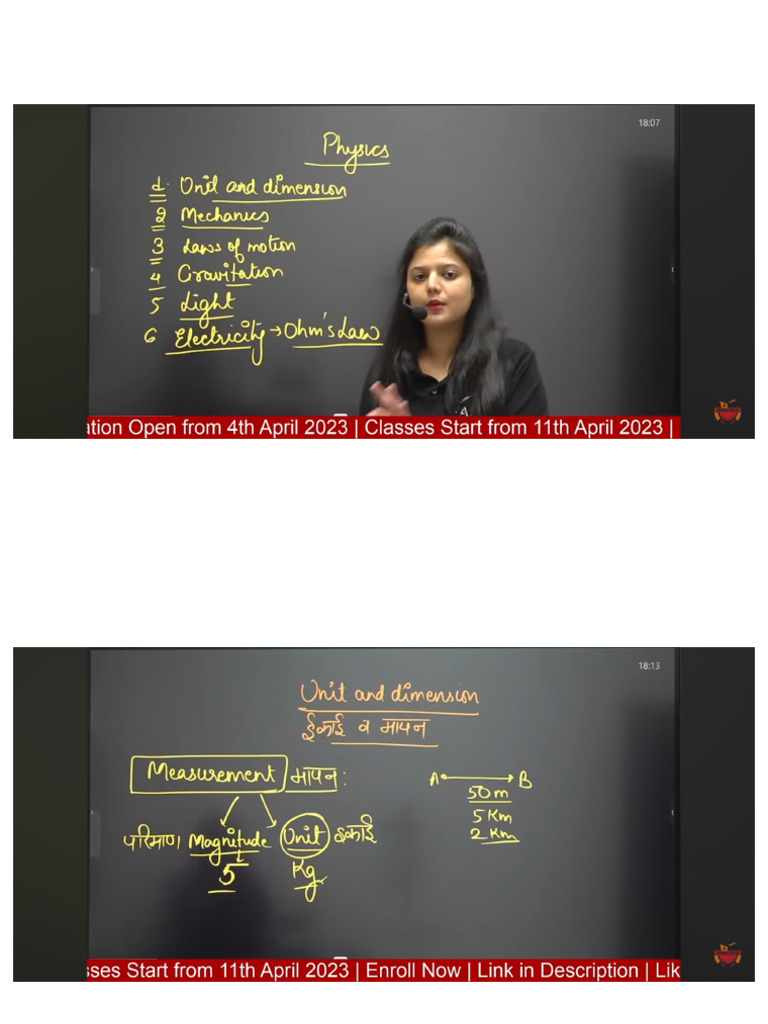 18:07
Physics
1. Unit and dimension
2 Mechanics
3 Laws of motion
4 Gravitation
5 Light
6 Electricity → Ohm's Law
ation Open from 4th April 2023 | Classes Start from 11th April 2023 |
18:13
Unit and dimension
ईकाई व मापन
Measurement मापन :
A → B
50m
5 Km
2 Km
परिमाण Magnitude Unit इकाई
5 Kg
sses Start from 11th April 2023 | Enroll Now | Link in Description | Lik